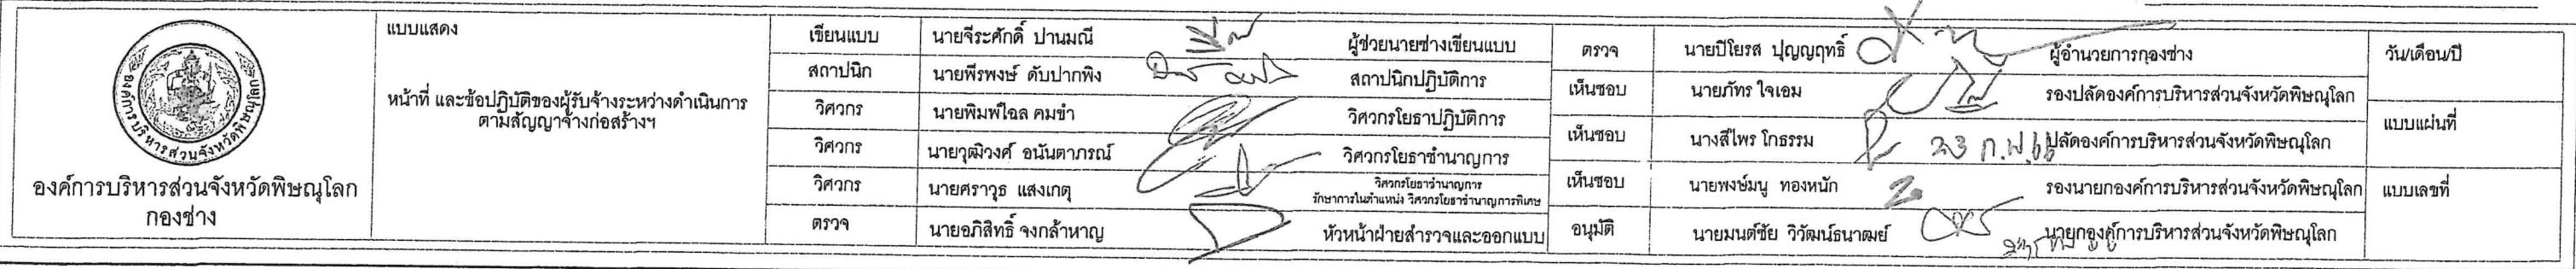 องค์การบริหารส่วนจังหวัดพิษณุโลก
องค์การบริหารส่วนจังหวัดพิษณุโลก
กองช่าง
แบบแสดง
หน้าที่ และข้อปฏิบัติของผู้รับจ้างระหว่างดำเนินการ
ตามสัญญาจ้างก่อสร้างฯ
เขียนแบบ นายจีระศักดิ์ ปานมณี ผู้ช่วยนายช่างเขียนแบบ
สถาปนิก นายพีรพงษ์ ดับปากพิง สถาปนิกปฏิบัติการ
วิศวกร นายพิมพ์ไฉล คมขำ วิศวกรโยธาปฏิบัติการ
วิศวกร นายวุฒิวงศ์ อนันตาภรณ์ วิศวกรโยธาชำนาญการ
วิศวกร นายศราวุธ แสงเกตุ วิศวกรโยธาชำนาญการ
รักษาการในตำแหน่ง วิศวกรโยธาชำนาญการพิเศษ
ตรวจ นายอภิสิทธิ์ จงกล้าหาญ หัวหน้าฝ่ายสำรวจและออกแบบ
ตรวจ นายปิโยรส ปุญญฤทธิ์ ผู้อำนวยการกองช่าง
เห็นชอบ นายภัทร ใจเอม รองปลัดองค์การบริหารส่วนจังหวัดพิษณุโลก
เห็นชอบ นางสีไพร โกธรรม 23 ก.พ. 66 ปลัดองค์การบริหารส่วนจังหวัดพิษณุโลก
เห็นชอบ นายพงษ์มนู ทองหนัก รองนายกองค์การบริหารส่วนจังหวัดพิษณุโลก
อนุมัติ นายมนต์ชัย วิวัฒน์ธนาฒย์ นายกองค์การบริหารส่วนจังหวัดพิษณุโลก
วัน/เดือน/ปี
แบบแผ่นที่
แบบเลขที่